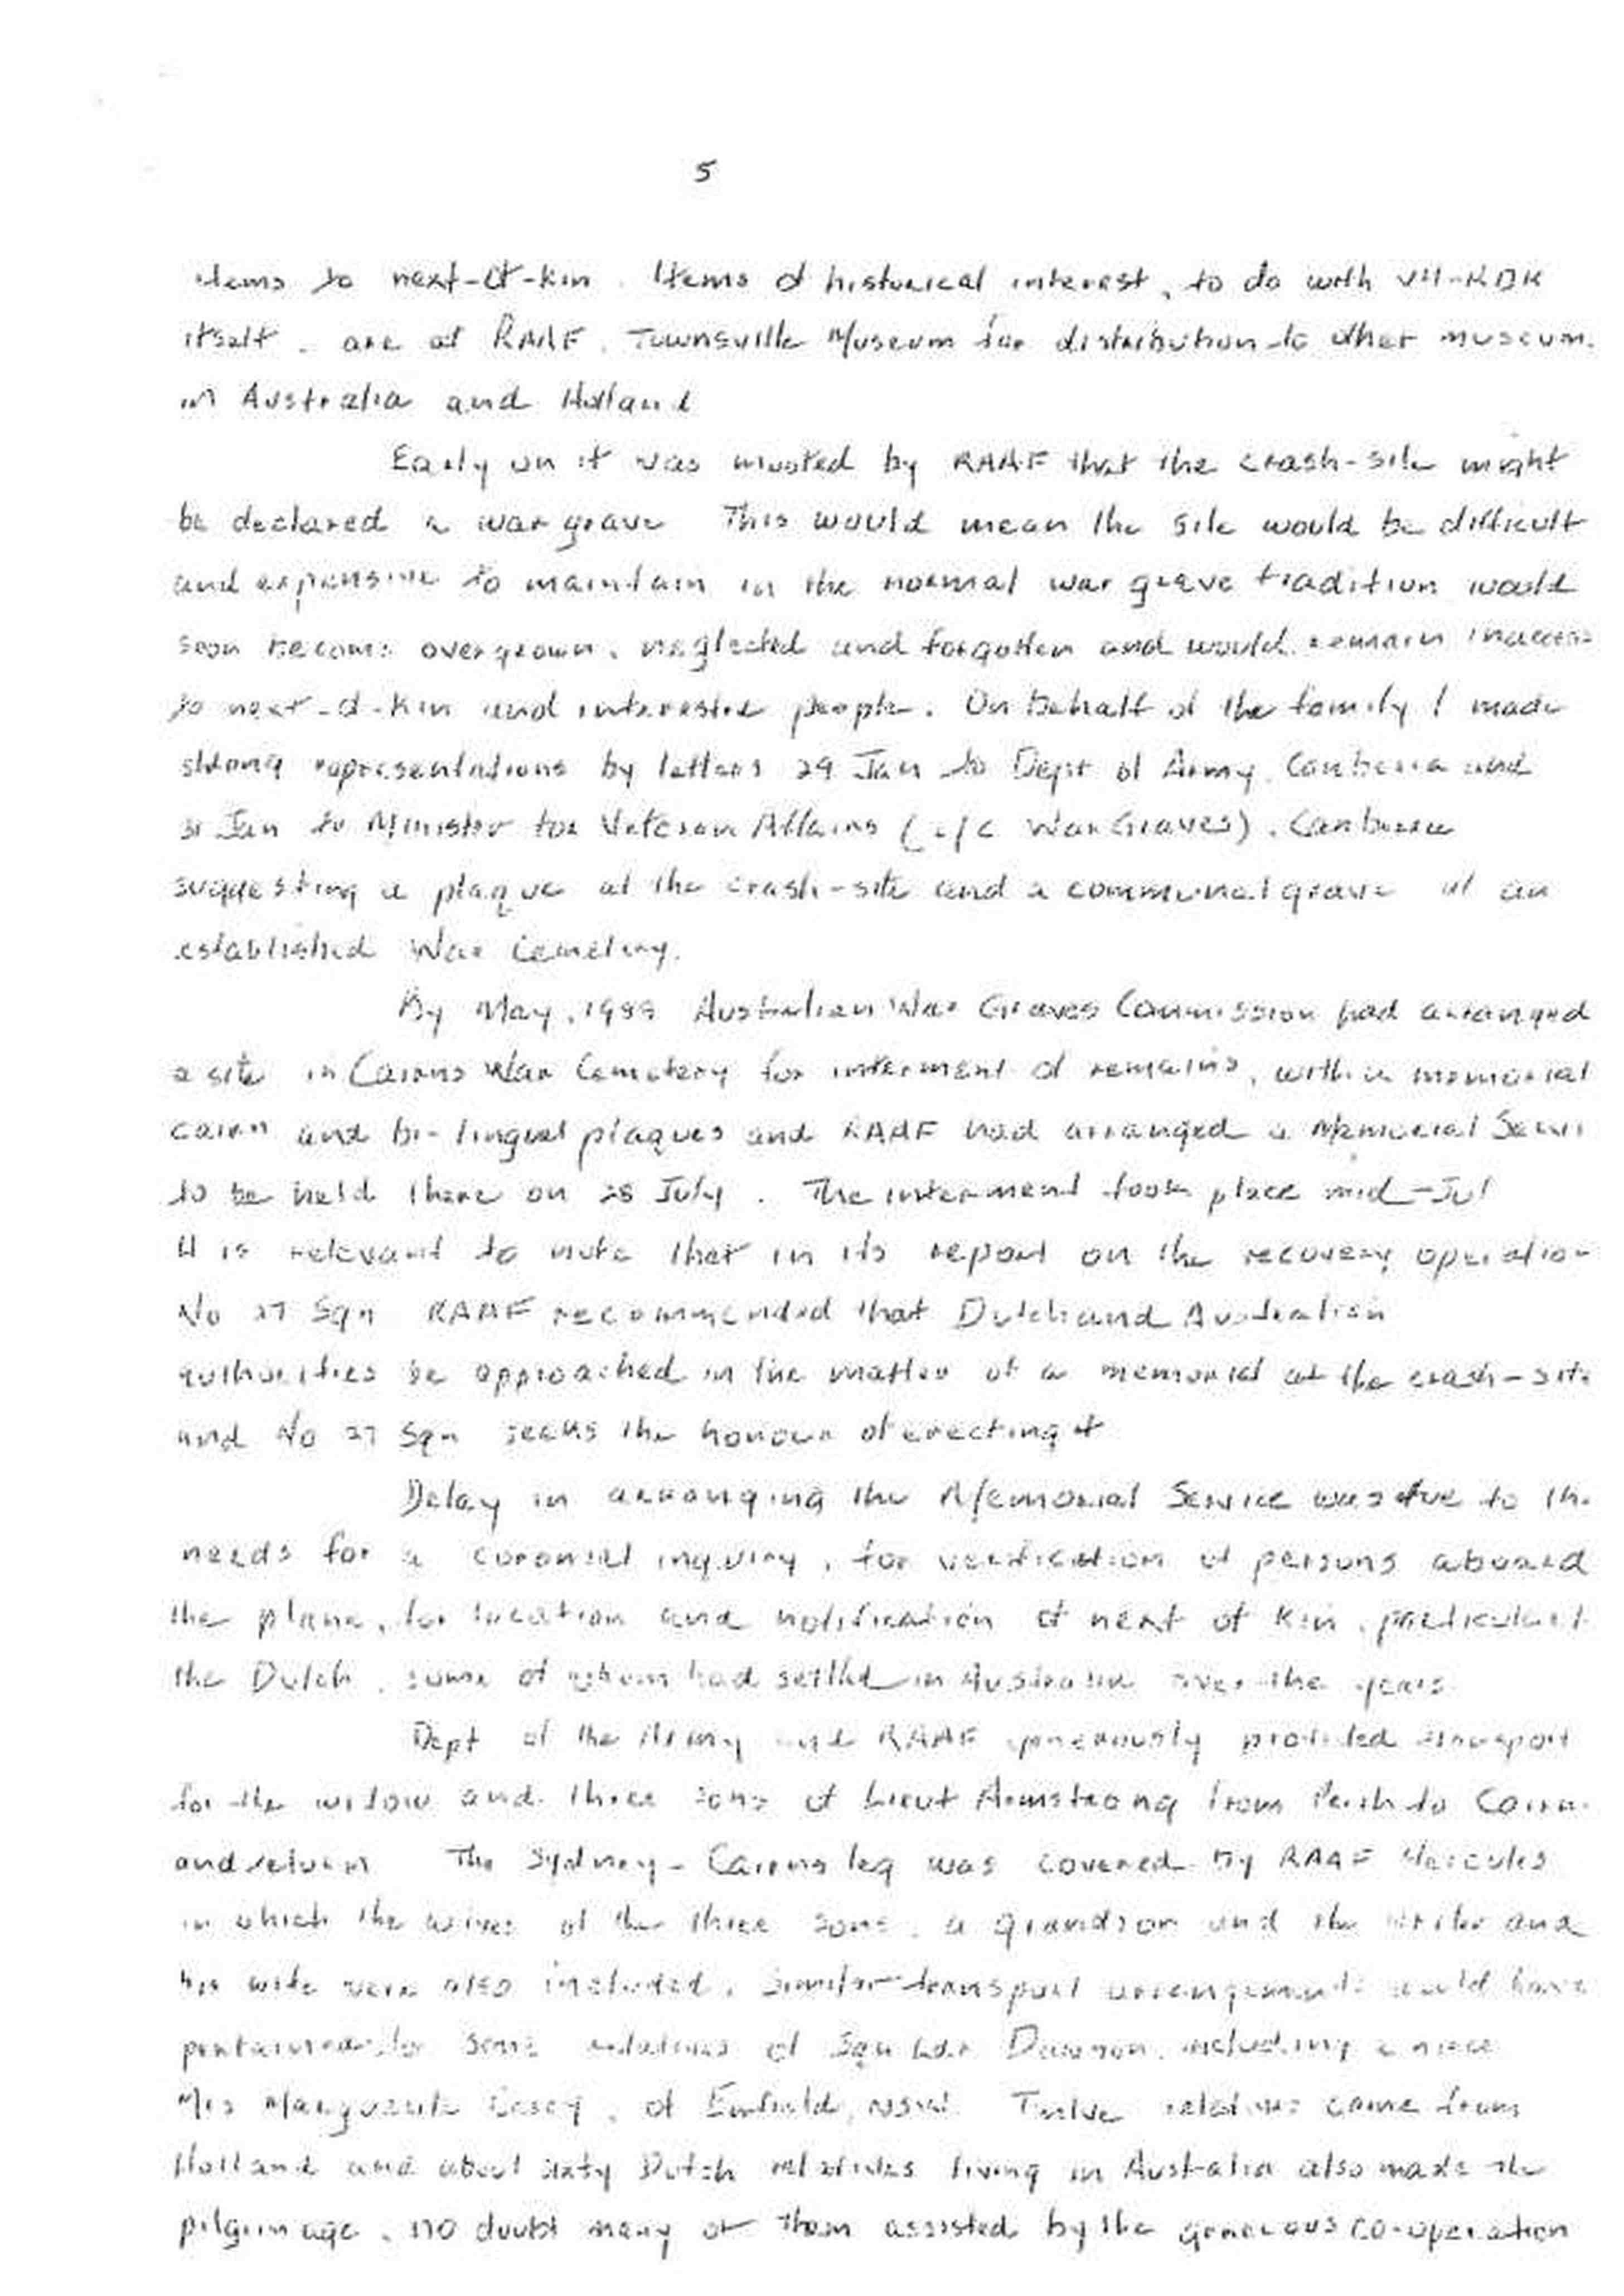 5
items to next-of-kin. Items of historical interest, to do with VH-RDK
itself, are at RAAF, Townsville Museum for distribution to other museum
in Australia and Holland
Early on it was mooted by RAAF that the crash-site might
be declared a war grave This would mean the site would be difficult
and expensive to maintain in the normal war grave tradition would
soon become overgrown, neglected and forgotten and would remain
to next-of-kin and interested people. On behalf of the family I made
strong representations by letters 29 Jan to Dept of Army, Canberra and
31 Jan to Minister for Veteran Affairs (c/c War Graves), Canberra
suggesting a plaque at the crash-site and a communal grave at an
established War Cemetery.
By May, 1989 Australian War Graves Commission had arranged
a site in Cairns War Cemetery for interment of remains, with a memorial
cairn and bi-lingual plaques and RAAF had arranged a Memorial
to be held there on 28 July. The interment took place mid-Jul
It is relevant to note that in its report on the recovery operation
No 27 Sqn RAAF recommended that Dutch and Australian
authorities be approached in the matter of a memorial at the crash-site
and No 27 Sqn seeks the honour of erecting it
Delay in arranging the Memorial Service was due to the
needs for a coronial inquiry, for verification of persons aboard
the plane, for location and notification of next of kin, particularl
the Dutch, some of whom had settled in Australia over the years.
Dept of the Army and RAAF generously provided transport
for the widow and three sons of Lieut Armstrong from Perth to Cairns
and return The Sydney-Cairns leg was covered by RAAF Hercules
in which the wives of the three sons, a grandson and the writer and
his wife were also included. Similar transport arrangements would have
pertained to some relatives of Sqn Ldr Dawson, including a niece
Mrs Marguerite Casey, of Enfield, NSW. Twelve relatives came from
Holland and about sixty Dutch relatives living in Australia also made the
pilgrimage, no doubt many of them assisted by the generous co-operation